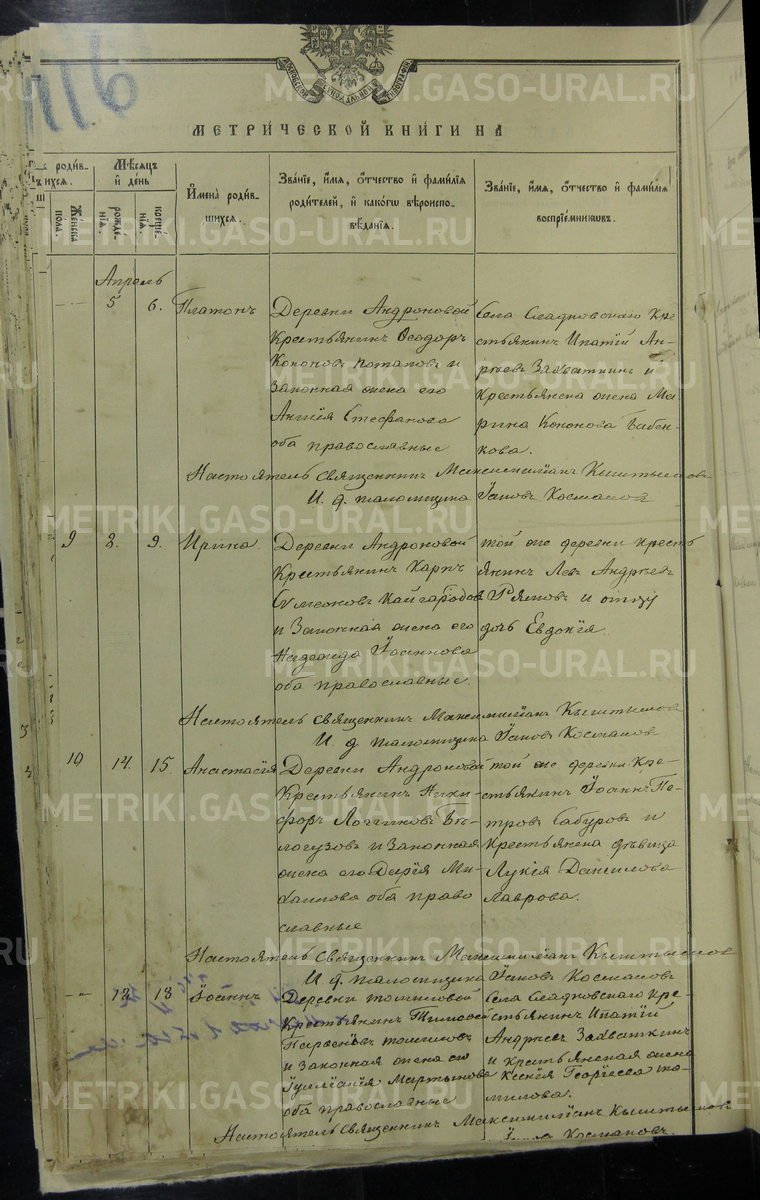 116
МЕТРИ́ЧЕСКОЙ КНИ́ГИ НА
роди́вшихся.
Же́нска пола.
Мѣ́сяцъ и҆ де́нь
рожде́нїѧ.
креще́нїѧ.
И҆мена̀ роди́вшихсѧ.
Зва́нїе, и҆́мѧ, ѻ҆́тчество и҆ фами́лїѧ роди́телей, и҆ како́гѡ вѣроисповѣ́данїѧ.
Зва́нїе, и҆́мѧ, ѻ҆́тчество и҆ фами́лїѧ воспрїе́мникѡвъ.
Апрель
5 6. Платонъ
Деревни Андроновой
Крестьянинъ Ѳеодоръ
Кононовъ Потаповъ и
Законная жена его
Стефанова
оба православные
Села Сладковскаго Кре
стьянинъ Ипатій Ан-
дрѣевъ Захваткинъ и
Крестьянска жена Ма
рина Кононова Бабен-
кова.
Настоятель священникъ Максимиліанъ Кыштымовъ
И. д. псаломщика Іаковъ Космаковъ
9 8. 9. Ирина
Деревни Андроновой
Крестьянинъ Карпъ
Симеоновъ Кайгародовъ
и Законная жена его
Надежда Іоаннова
оба православные.
той же деревни кресть
янинъ Левъ Андрѣевъ
Рямовъ и отцу
дочь Евдокія.
Настоятель священникъ Максимиліанъ Кыштымовъ
И. д. псаломщика Іаковъ Космаковъ
10 14. 15. Анастасія
Деревни Андроновой
Крестьянинъ Ники-
форъ Логгиновъ Бѣ-
логузовъ и Законная
жена его Дарія Ми-
хаилова оба право
славные
той же деревни Кре-
стьянинъ Іоаннъ Пе-
тровъ Сабуровъ и
Крестьянска дѣвица
Лукія Данилова
Лаврова.
Настоятель священникъ Максимиліанъ Кыштымовъ
И. д. псаломщика Іаковъ Космаковъ
12 13 Іоаннъ
Деревни Томиловой
Крестьянинъ Тимофей
Парѳеновъ Томиловъ
и Законная жена его
Іулианія Мартынова
оба православные
Села Сладковскаго Кре-
стьянинъ Ипатій
Андрѣевъ Захваткинъ
и Крестьянская жена
Ксенія Георгіева То-
милова.
Настоятель Священникъ Максимиліанъ Кыштымовъ
Іаковъ Космаковъ
METRIKI.GASO-URAL.RU